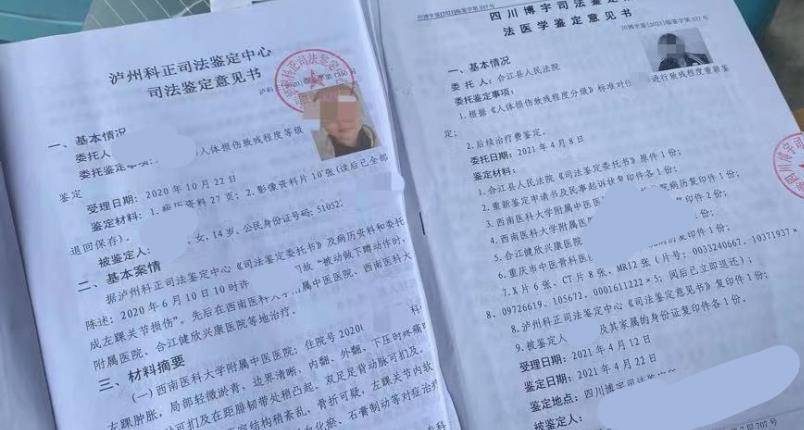 泸州科正司法鉴定中心
司法鉴定意见书
一、基本情况
委托人
委托鉴定事项 人体损伤致残程度等级
鉴定
受理日期：2020年10月22日
鉴定材料：1.病历资料27页；2.影像资料片10张(读后已全部
退回保存)。
被鉴定人： 女，14岁，公民身份证号码：51052
二、基本案情
据泸州科正司法鉴定中心《司法鉴定委托书》及病历资料和委托
陈述：2020年6月10日10时许 "被动做下蹲动作时，
成左踝关节损伤"。先后在西南医科大 附属中医医院、西南医科大
附属医院、合江健欣兴康医院等地治疗。
三、材料摘要
(一)西南医科大学附属中医医院，住院号2020
左踝肿胀，局部轻微淤青，边界清晰，内翻、外翻、下压时疼痛
四川博宇司法鉴定
法医学鉴定意见书
一、基本情况
委托人：合江县人民法院
委托鉴定事项：
1.根据《人体损伤致残程度分级》标准对 进行致残程度重新鉴
定；
2.后续治疗费鉴定。
委托日期：2021年4月8日
1.合江县人民法院《司法鉴定委托书》原件1份；
2.重新鉴定申请书及民事起诉状复印件各1份；
3.西南医科大学附属中医医院 病历复印件1份；
4.西南医科大学附属 复印件2份；
5.合江健欣兴康医院 复印件1份；
6.重庆市中医骨科医 件1份；
7.X片6张、CT片8张、MRI2张(片号：0033240667、10371937×
8、09726619、105672、0001611222×5；阅后已立即退还)；
8.泸州科正司法鉴定中心《司法鉴定意见书》复印件1份；
9.被鉴定人 及其家属的身份证复印件各1份。
受理日期：2021年4月12日
鉴定日期：2021年4月22日
鉴定地点：四川博宇司法鉴定
被鉴定人：